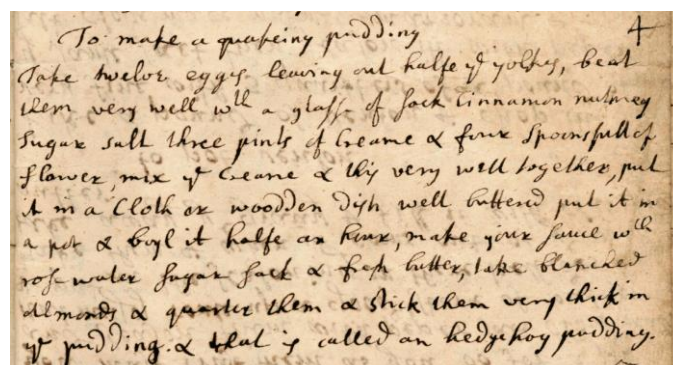 To make a quakeing pudding 4
Take twelve eggs leaving out halfe ye yolkes, beat
them very well wth a glasse of sack Cinnamon nutmeg
Sugar salt three pints of Creame & four Spoonsfull of
flower, mix ye Creame & this very well together, put
it in a Cloth or woodden dish well buttered put it in
a pot & boyl it halfe an hour, make your sauce wth
rose water sugar sack & fresh butter, take blanched
almonds & quarter them & stick them very thick in
ye pudding. & that is called an hedgehog pudding.